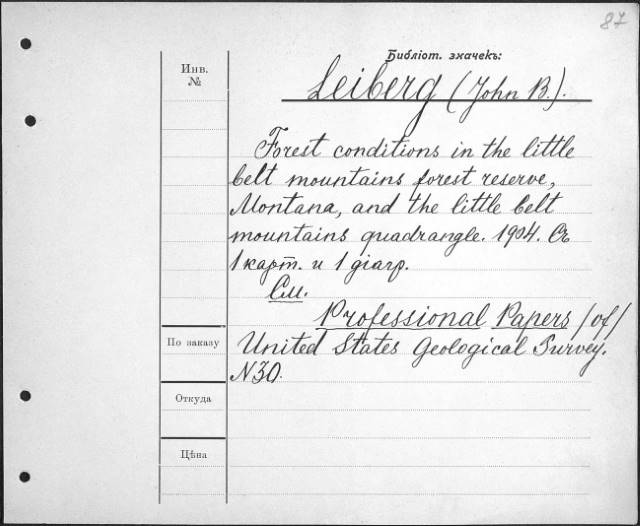 87
Библіот. значекъ:
Инв.
№
Leiberg (John B.).
Forest conditions in the little
belt mountains forest reserve,
Montana, and the little belt
mountains quadrangle. 1904. Съ
1 карт. и 1 діагр.
См.
Professional Papers /of/
По заказу
United States Geological Survey.
N30.
Откуда
Цѣна